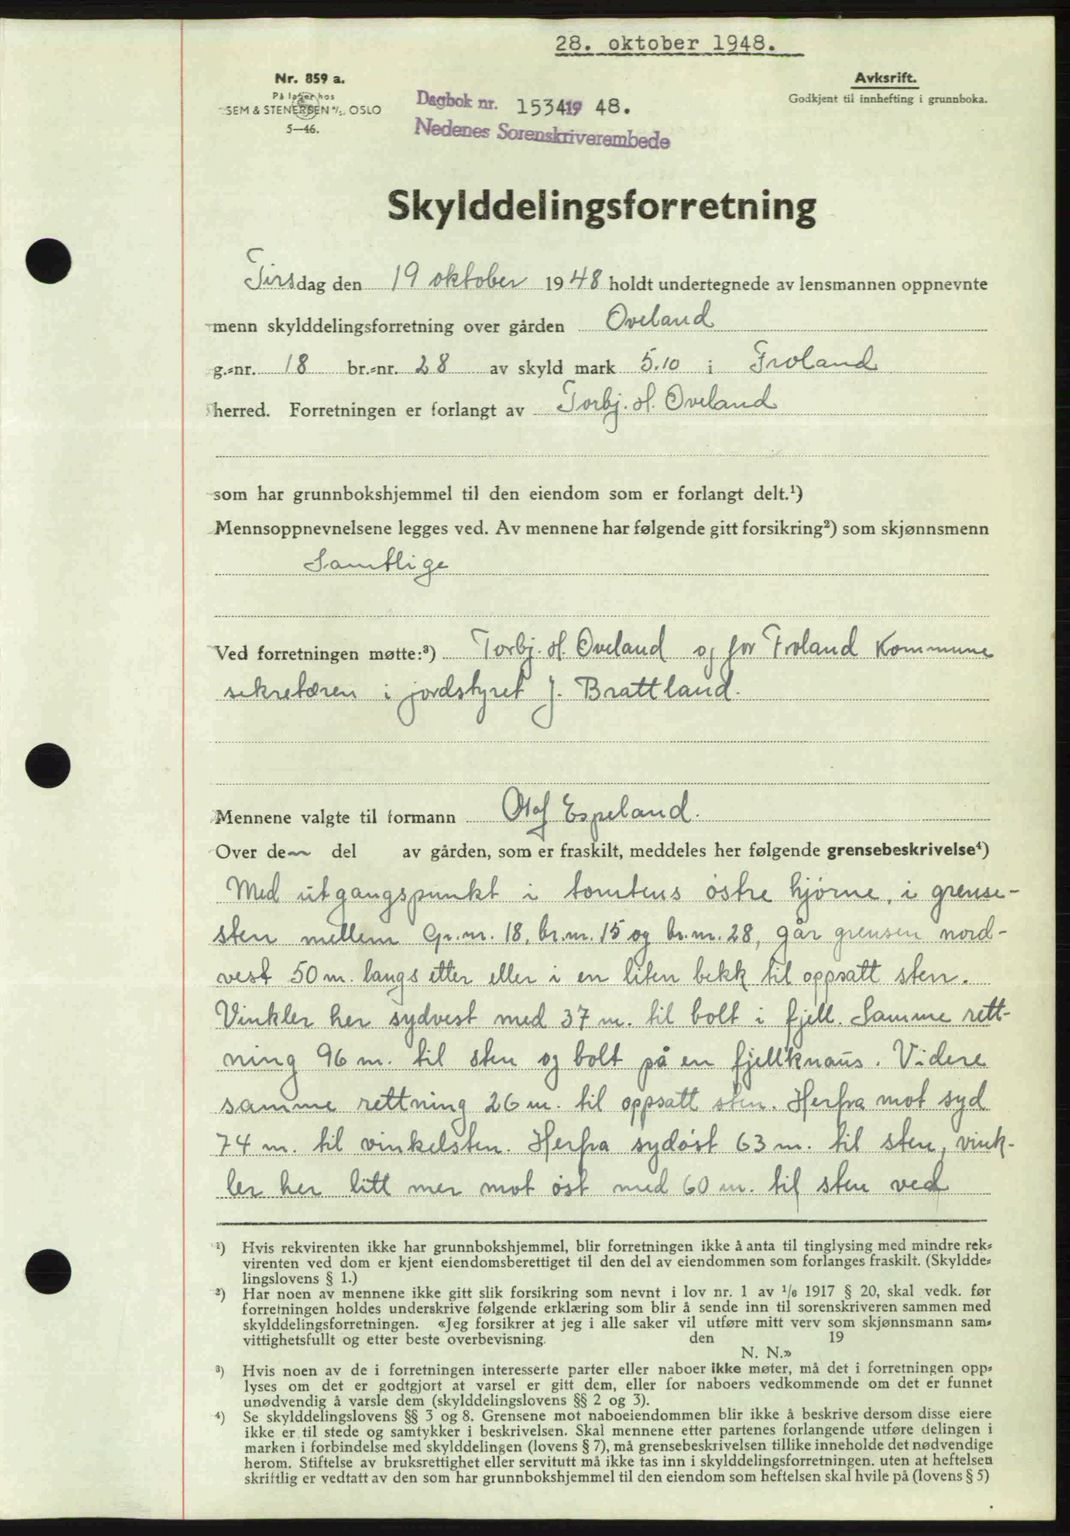 28. oktober 1948.
Nr. 859 a.
På lager hos
SEM & STENERSEN A/S, OSLO
5—46.
Dagbok nr. 1534 19 48.
Nedenes Sorenskriverembede
Avksrift.
Godkjent til innhefting i grunnboka.
Skylddelingsforretning
Tirsdag den 19 oktober 1948 holdt undertegnede av lensmannen oppnevnte
menn skylddelingsforretning over gården Oveland
g.-nr. 18 br.-nr. 28 av skyld mark 5.10 i Froland
herred. Forretningen er forlangt av Torbj. H. Oveland
som har grunnbokshjemmel til den eiendom som er forlangt delt.¹)
Mennsoppnevnelsene legges ved. Av mennene har følgende gitt forsikring²) som skjønnsmenn
Samtlige
Ved forretningen møtte:³) Torbj. H. Oveland og for Froland Kommune
sekretæren i jordstyret J. Brattland.
Mennene valgte til formann Olaf Espeland.
Over de~ del av gården, som er fraskilt, meddeles her følgende grensebeskrivelse⁴)
Med utgangspunkt i tomtens østre hjørne, i grense-
sten mellem Gr.nr. 18, br.nr. 15 og br.nr. 28, går grensen nord-
vest 50 m. langs etter eller i en liten bekk til oppsatt sten.
Vinkler her sydvest med 37 m. til bolt i fjell. Samme rett-
ning 96 m. til sten og bolt på en fjellknaus. Videre
samme rettning 26 m. til oppsatt sten. Herfra mot syd
74 m. til vinkelsten. Herfra sydøst 63 m. til sten, vink-
ler her litt mer mot øst med 60 m. til sten ved
¹) Hvis rekvirenten ikke har grunnbokshjemmel, blir forretningen ikke å anta til tinglysing med mindre rek-
virenten ved dom er kjent eiendomsberettiget til den del av eiendommen som forlanges fraskilt. (Skyldde-
lingslovens § 1.)
²) Har noen av mennene ikke gitt slik forsikring som nevnt i lov nr. 1 av 1/6 1917 § 20, skal vedk. før
forretningen holdes underskrive følgende erklæring som blir å sende inn til sorenskriveren sammen med
skylddelingsforretningen. «Jeg forsikrer at jeg i alle saker vil utføre mitt verv som skjønnsmann sam-
vittighetsfullt og etter beste overbevisning. den 19
N. N.»
³) Hvis noen av de i forretningen interesserte parter eller naboer ikke møter, må det i forretningen opp-
lyses om det er godtgjort at varsel er gitt dem, eller for naboers vedkommende om det er funnet
unødvendig å varsle dem (skylddelingslovens §§ 2 og 3).
⁴) Se skylddelingslovens §§ 3 og 8. Grensene mot naboeiendommen blir ikke å beskrive dersom disse eiere
ikke er til stede og samtykker i beskrivelsen. Skal mennene etter partenes forlangende utføre delingen i
marken i forbindelse med skylddelingen (lovens § 7), må grensebeskrivelsen tillike inneholde det nødvendige
herom. Stiftelse av bruksrettighet eller servitutt må ikke tas inn i skylddelingsforretningen. uten at heftelsen
skriftlig er vedtatt av den som har grunnbokshjemmel til den eiendom som heftelsen skal hvile på (lovens § 5)